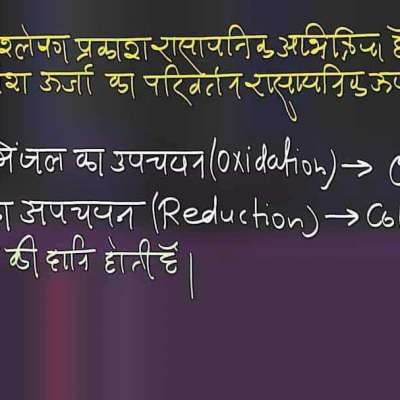 श्लेषण प्रकाश रासायनिक अभिक्रिया है
ऊर्जा का परिवर्तन रासायनिक
जल का उपचयन (Oxidation) →
अपचयन (Reduction) →
की हानि होती है |